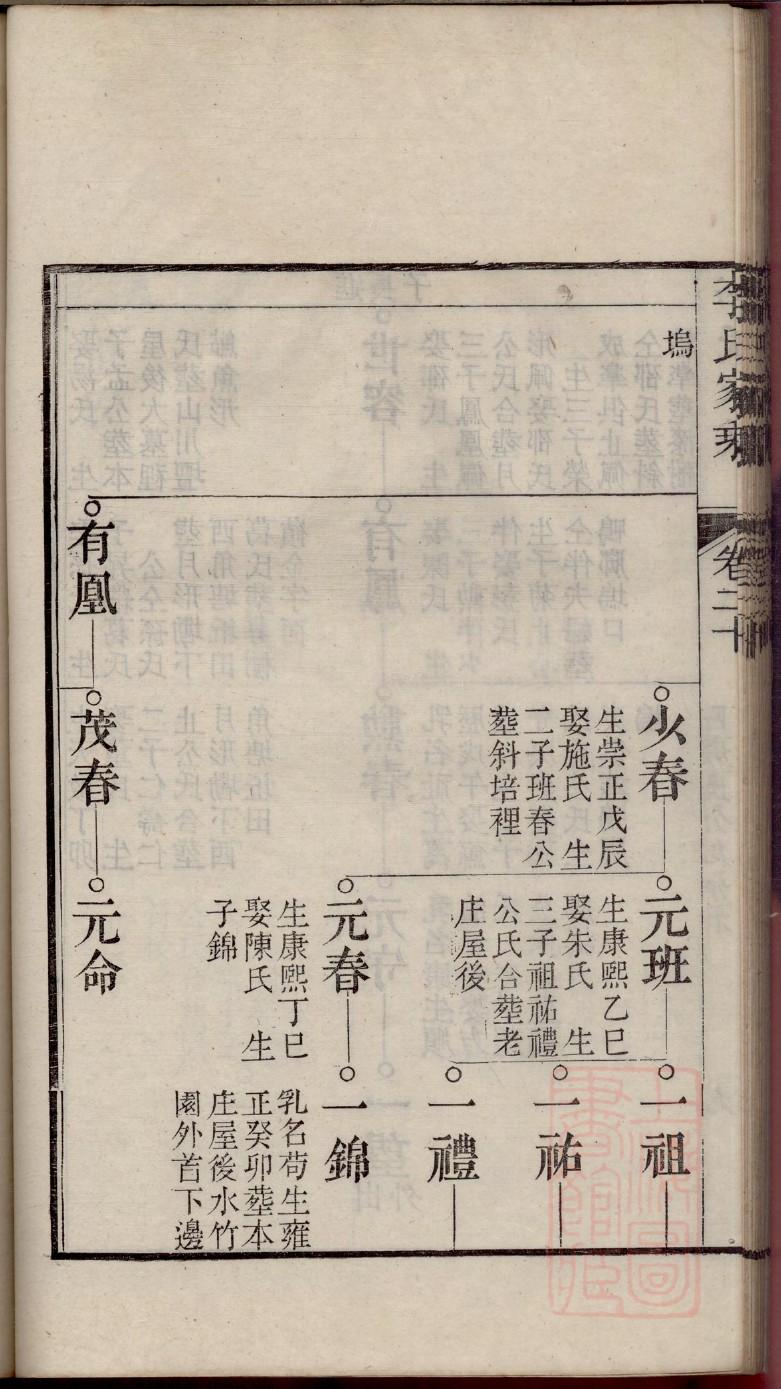 李氏家乘
卷二十
塢
少春
生崇正戊辰
娶施氏 生
二子班春公
塟斜培裡
元班
生康熙乙巳
娶朱氏 生
三子祖祐禮
公氏合塟老
庄屋後
一祖
一祐
一禮
元春
生康熙丁巳
娶陳氏 生
子錦
一錦
乳名苟生雍
正癸卯塟本
庄屋後水竹
園外首下邊
有凰
茂春
元命